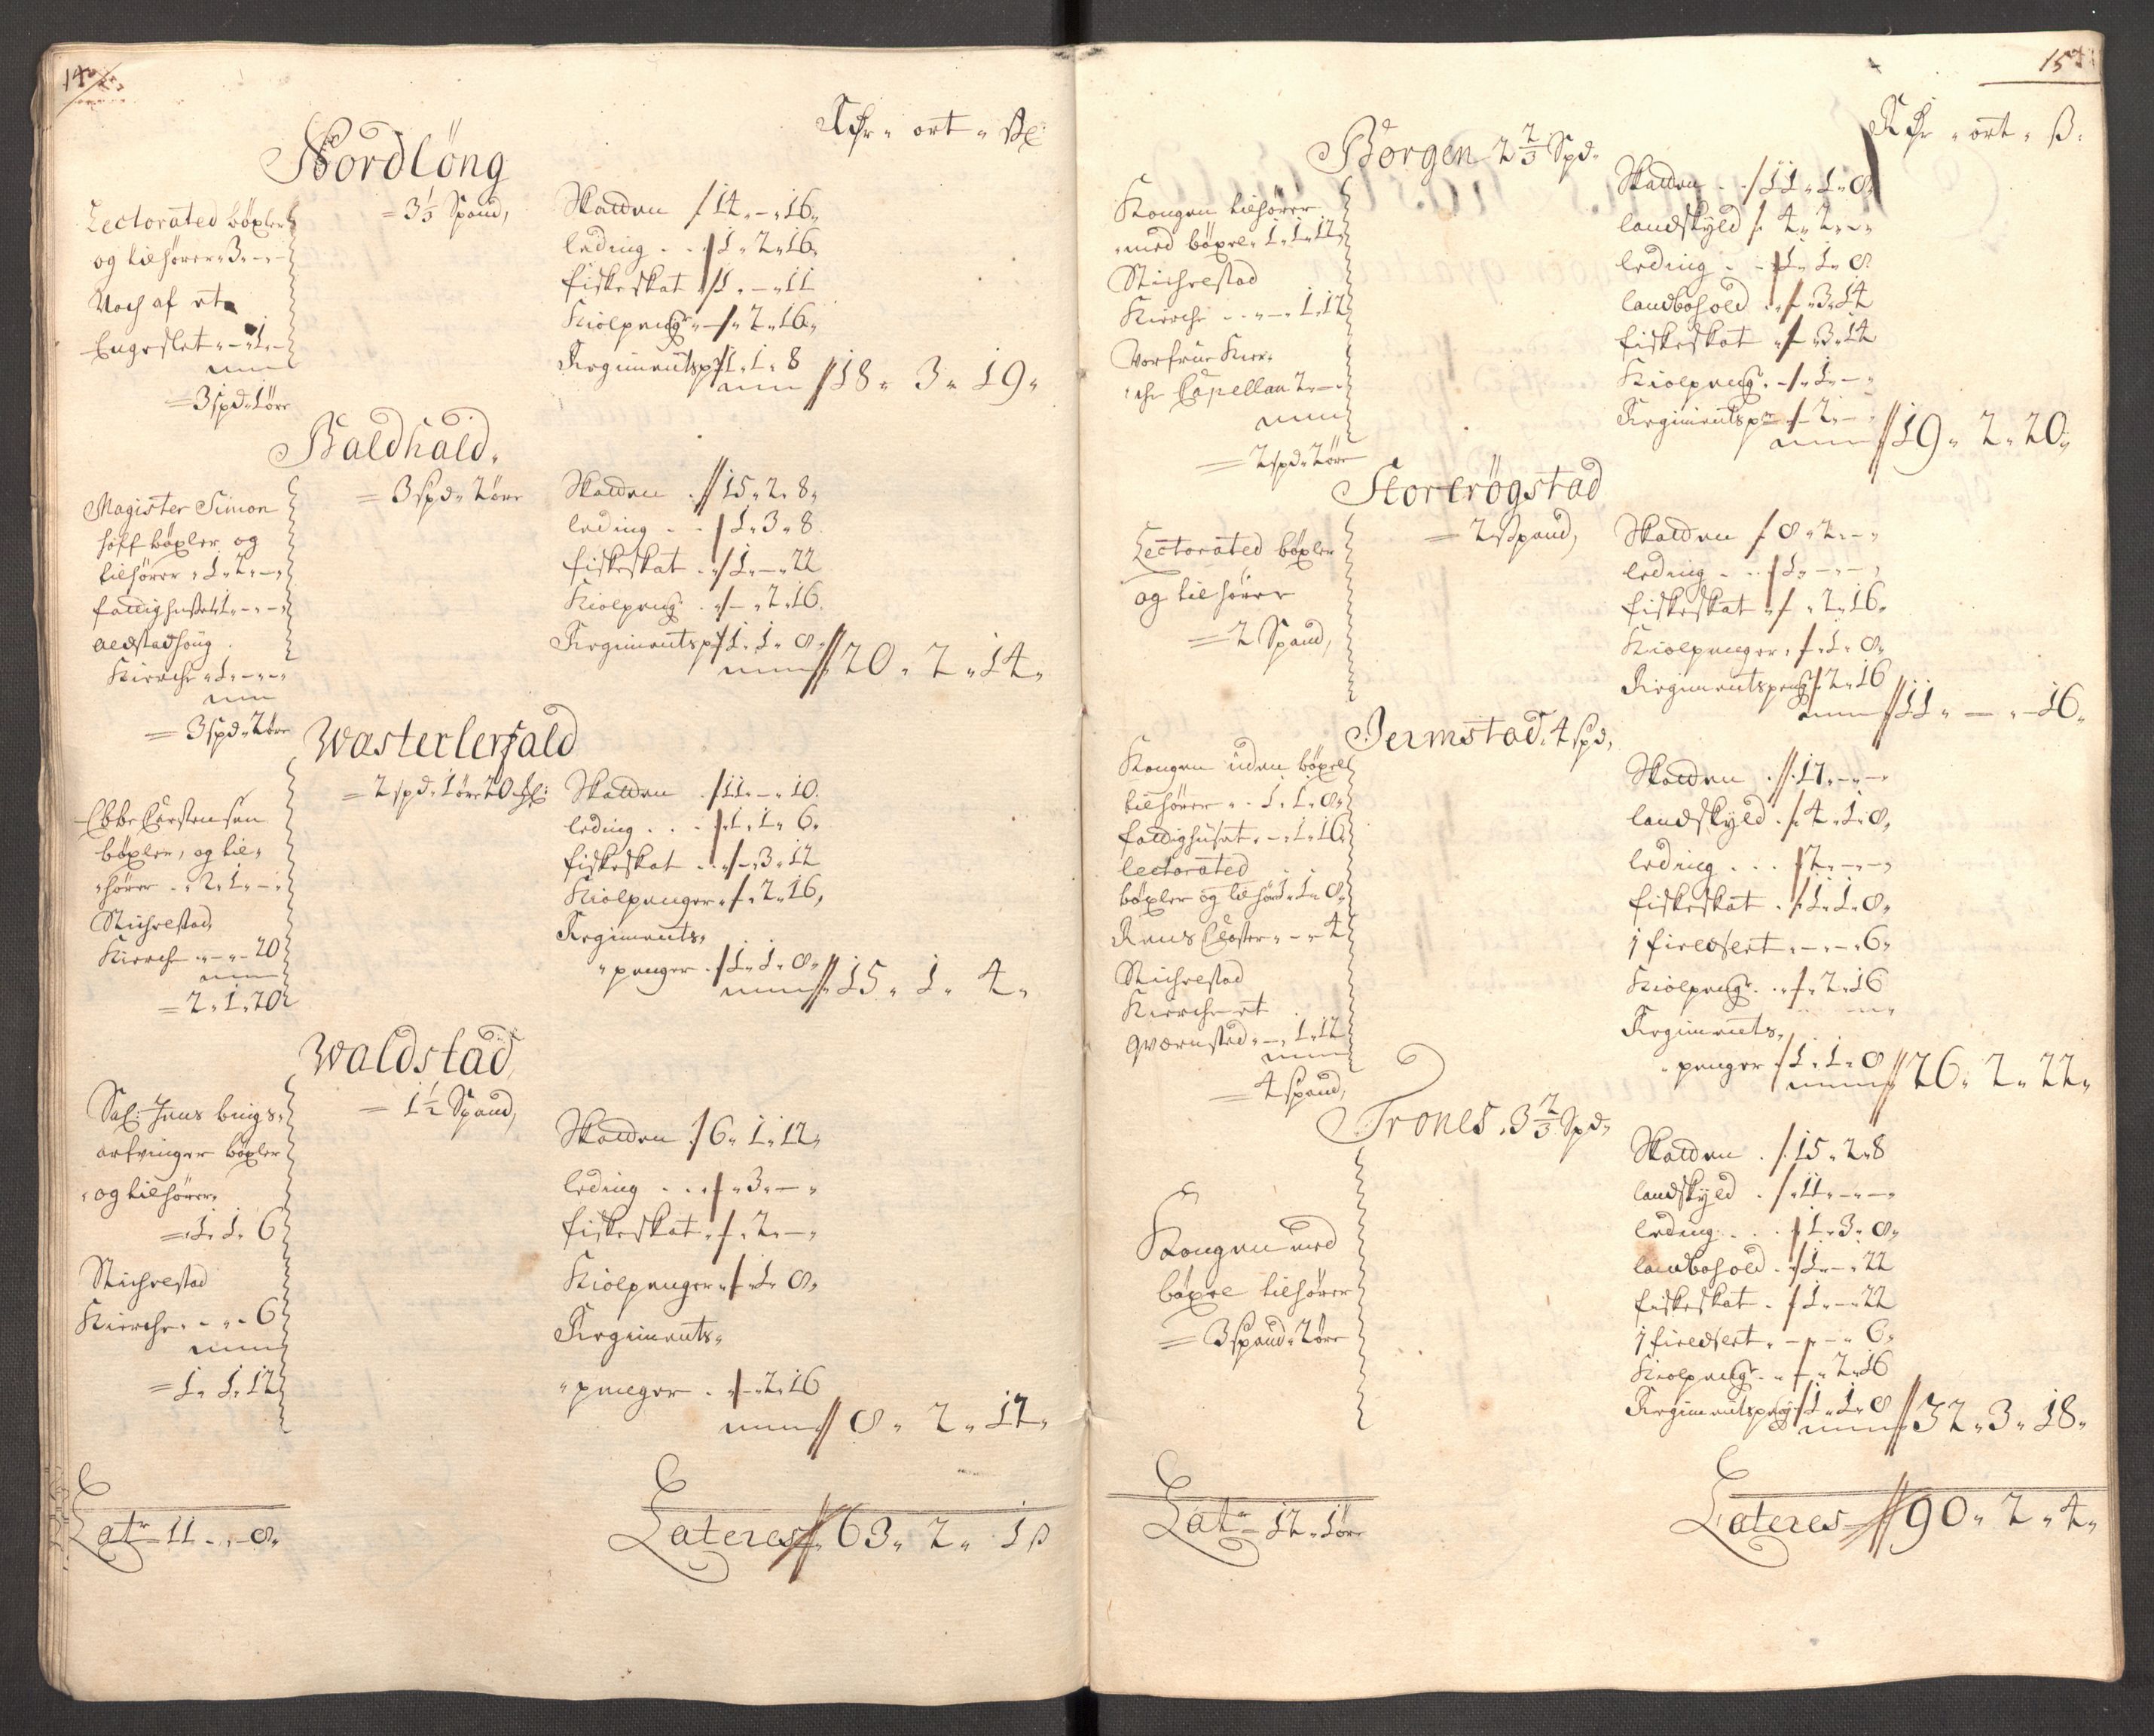 14
Rdr " ort " ß
Nordlöng
= 3⅓ Spand,
Lectorated böxler
og tilhører " 3 " - " -
Noch af et
Engeslet " - " 1 " -
= 3 spd " 1 öre
Skatten 14 " - " 16 "
leding . . 1 " 2 " 16 "
fiskeskat 1 " - " 11
Kiölpeng " - " 2 " 16 "
Regimentsp 1 " 1 " 8
18 " 3 " 19 "
Baldhald "
= 3 spd " 2 öre
Magister Simon
hoff böxler og
tilhører " 1 " 2 " - "
fattighuset 1 " - " - "
aldstadhoug
Kirche " 1 " - " - "
= 3 spd " 2 öre
Skatten . 15 " 2 " 8 "
leding . . 1 " 3 " 8
fiskeskat . 1 " - " 22
Kiölpeng . " - " 2 " 16
Regimentsp 1 " 1 " 8 "
20 " 2 " 14 "
Wasterlerfald
= 2 spd " 1 öre 20
Ebbe Carstensen
böxler, og til "
" hører . " 2 " 1 " - "
Stichelstad
Kirche " - " - 20
= 2 " 1 " 20
Skatten . 11 " - " 10
leding . . . 1 " 1 " 6 "
fiskeskat . . " - " 3 " 12
Kiölpenger " - " 2 " 16 "
Regiments "
" penger . 1 " 1 " 8 "
15 " 1 " 4 "
Waldstad
= 1½ Spand,
Sal: Jens bings "
arfvinger böxler
" og tilhører "
= 1 " 1 " 6
Stichelstad
Kirche " - " - 6
= 1 " 1 " 12
Skatten . 6 " 1 " 12 "
leding . . . " 3 " - "
fiskeskat " " 2 " - "
Kiölpenger " " 1 " 8 "
Regiments "
" penger . " - " 2 " 16
8 " 2 " 12 "
Lat^r 11 " - " 8 "
Lateres 63 " 2 " 1 ß
15
Rdr " ort " ß:
Borgen 2⅔ Spd "
Kongen tilhører
" med böxel " 1 " 1 " 12
Stichelstad
Kirche . . " - " 1 " 12
Vorfrue Kir "
" che Capellan 2 " - "
= 2 spd " 2 öre
Skatten . . 11 " 1 " 8
landskyld 4 " 2 " - "
leding . . 1 " 1 " 8
landbohold . " 3 " 14
fiskeskat " 3 " 14
Kiölpeng . " 1 " - "
Regimentsp " 2 " - "
19 " 2 " 20 "
Storcrögstad
= 2 Spand,
Lectorated böxler
og tilhører
= 2 Spand,
Skatten 8 " 2 " - "
leding . . . 1 " - " - "
fiskeskat " " 2 " 16 "
Kiölpenger " " 1 " 8 "
Regimentspeng " 2 " 16
11 " - " 16 "
Jermstad " 4 spd,
Kongen uden böxel
tilhører " . 1 " 1 " 8 "
fattighuset " - " 1 " 16
lectorated
böxler og tilhör 1 " 1 " 8 "
Reins Closter " - " - 4
Stichelstad
Kirche et
Qvernsted " - " 1 " 12
= 4 spand,
Skatten . 17 " - " - "
landskyld . 4 " 1 " 8 "
leding . . . 2 " - " - "
fiskeskat . 1 " 1 " 8 "
1 fierdsert " - " - " 6 "
Kiölpeng . " 2 " 16
Regiments "
" penger 1 " 1 " 8
26 " 2 " 22 "
Trones " 3⅔ Spd "
Kongen med
böxel tilhører
= 3 spand " 2 öre
Skatten . 15 " 2 " 8
landskyld . 11 " - " - "
leding . . . 1 " 3 " 8 "
landbohold . 1 " - " 22
fiskeskat . 1 " - " 22
1 fierdsert " - " - " 6 "
Kiölpeng . " " 2 " 16
Regimentspeng 1 " 1 " 8
32 " 3 " 18 "
Lat^r 12 " 1 öre
Lateres 90 " 2 " 4 "